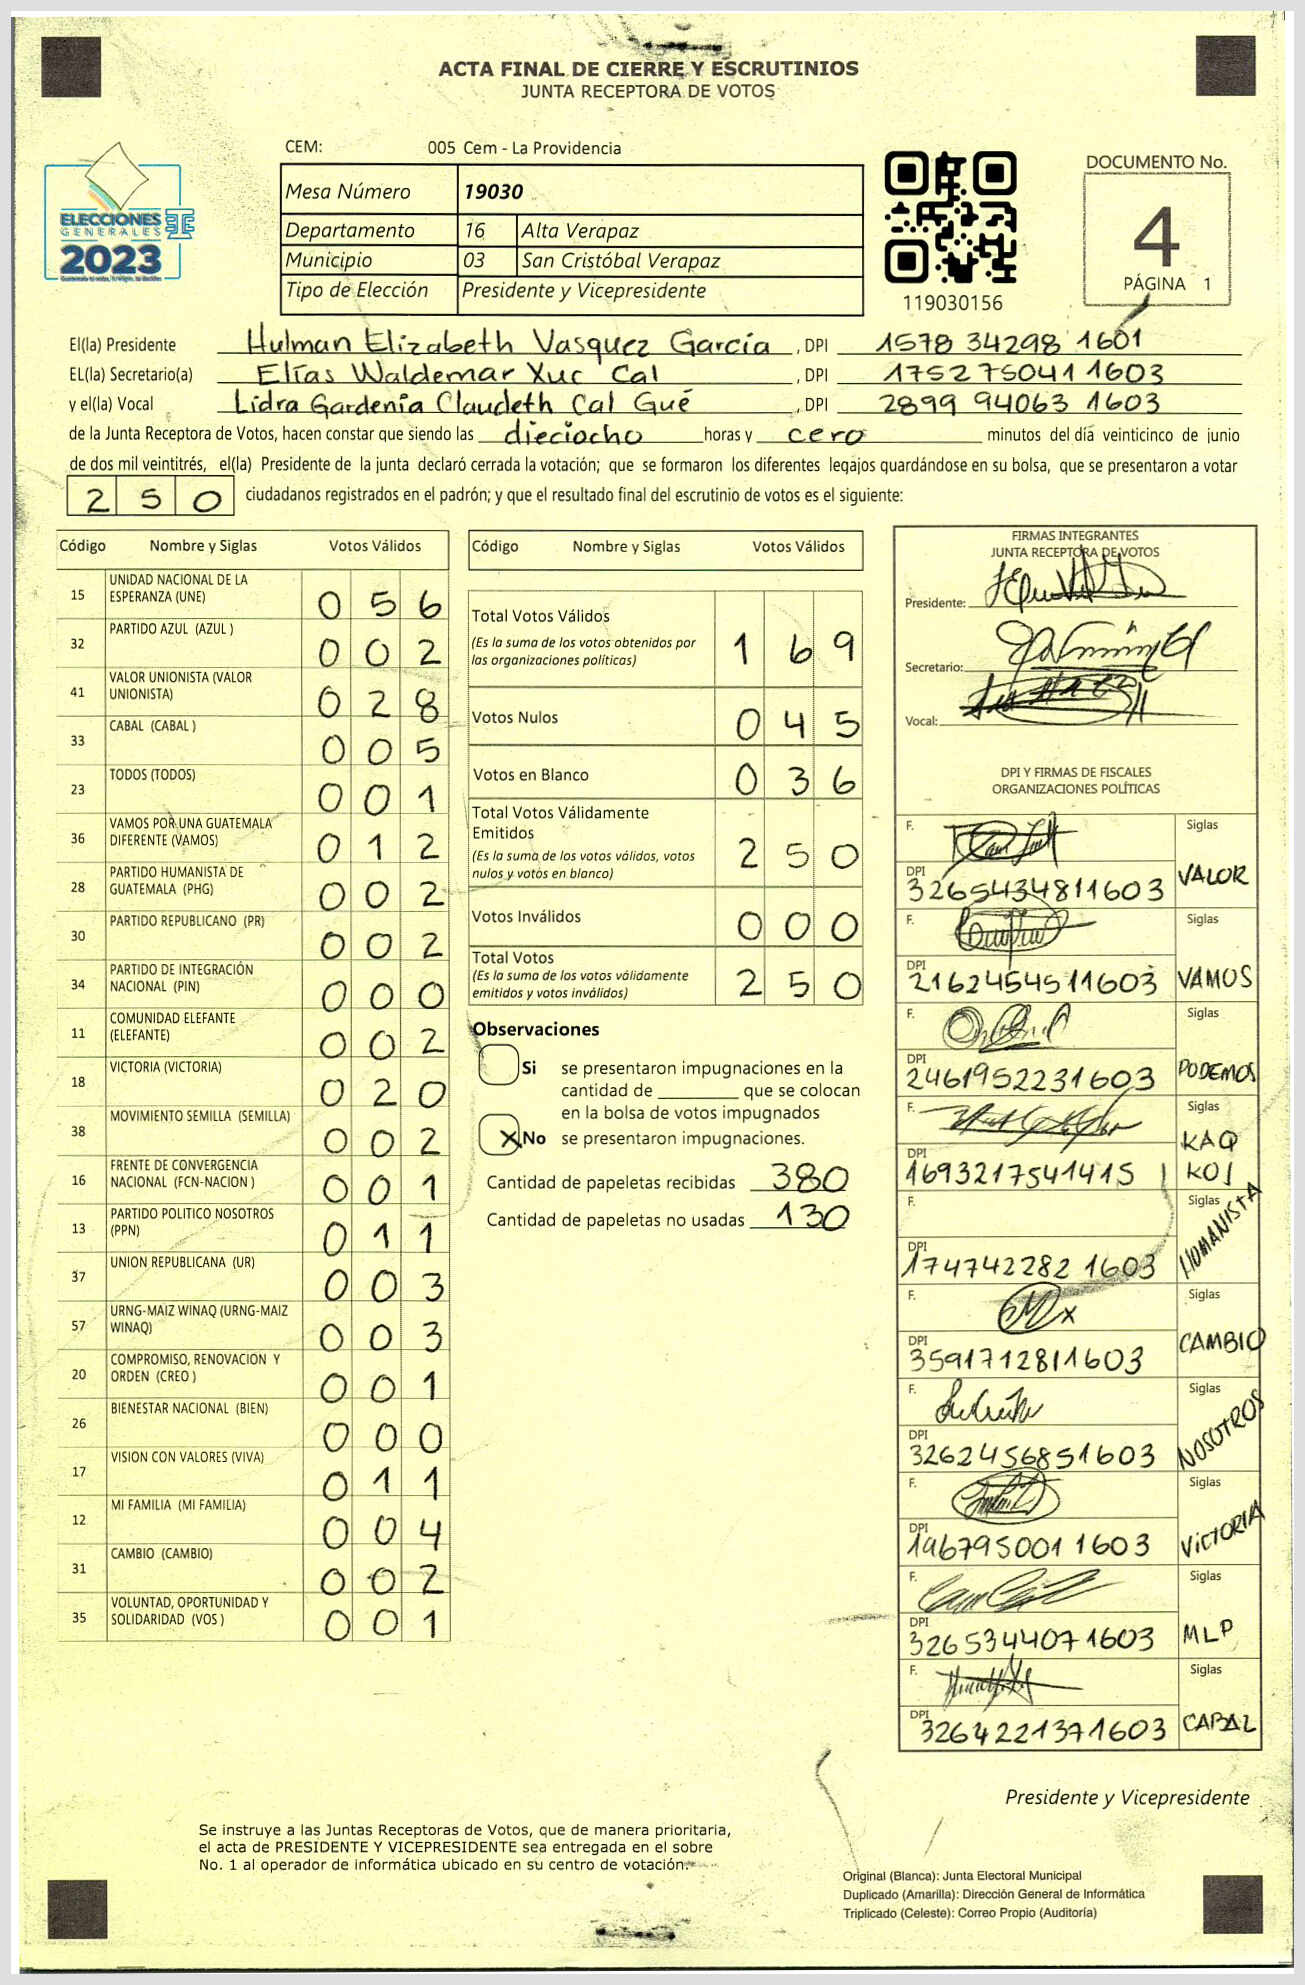 ACTA FINAL DE CIERRE Y ESCRUTINIOS
JUNTA RECEPTORA DE VOTOS
ELECCIONES
GENERALES
2023
CEM: 005 Cem - La Providencia
Mesa Número 19030
Departamento 16 Alta Verapaz
Municipio 03 San Cristóbal Verapaz
Tipo de Elección Presidente y Vicepresidente
119030156
DOCUMENTO No.
4
PÁGINA 1
El(la) Presidente Hulman Elizabeth Vasquez García , DPI 1578 34298 1601
EL(la) Secretario(a) Elías Waldemar Xuc Cal , DPI 1752 75041 1603
y el(la) Vocal Lidra Gardenia Claudeth Cal Gué , DPI 2899 94063 1603
de la Junta Receptora de Votos, hacen constar que siendo las dieciocho horas y cero minutos del día veinticinco de junio
de dos mil veintitrés, el(la) Presidente de la junta declaró cerrada la votación; que se formaron los diferentes legajos guardándose en su bolsa, que se presentaron a votar
250 ciudadanos registrados en el padrón; y que el resultado final del escrutinio de votos es el siguiente:
Código Nombre y Siglas Votos Válidos
15 UNIDAD NACIONAL DE LA ESPERANZA (UNE) 056
32 PARTIDO AZUL (AZUL ) 002
41 VALOR UNIONISTA (VALOR UNIONISTA) 028
33 CABAL (CABAL ) 005
23 TODOS (TODOS) 001
36 VAMOS POR UNA GUATEMALA DIFERENTE (VAMOS) 012
28 PARTIDO HUMANISTA DE GUATEMALA (PHG) 002
30 PARTIDO REPUBLICANO (PR) 002
34 PARTIDO DE INTEGRACIÓN NACIONAL (PIN) 000
11 COMUNIDAD ELEFANTE (ELEFANTE) 002
18 VICTORIA (VICTORIA) 020
38 MOVIMIENTO SEMILLA (SEMILLA) 002
16 FRENTE DE CONVERGENCIA NACIONAL (FCN-NACION ) 001
13 PARTIDO POLITICO NOSOTROS (PPN) 011
37 UNION REPUBLICANA (UR) 003
57 URNG-MAIZ WINAQ (URNG-MAIZ WINAQ) 003
20 COMPROMISO, RENOVACION Y ORDEN (CREO ) 001
26 BIENESTAR NACIONAL (BIEN) 000
17 VISION CON VALORES (VIVA) 011
12 MI FAMILIA (MI FAMILIA) 004
31 CAMBIO (CAMBIO) 002
35 VOLUNTAD, OPORTUNIDAD Y SOLIDARIDAD (VOS ) 001
Código Nombre y Siglas Votos Válidos
Total Votos Válidos 169
(Es la suma de los votos obtenidos por
las organizaciones políticas)
Votos Nulos 045
Votos en Blanco 036
Total Votos Válidamente
Emitidos 250
(Es la suma de los votos válidos, votos
nulos y votos en blanco)
Votos Inválidos 000
Total Votos 250
(Es la suma de los votos válidamente
emitidos y votos inválidos)
Observaciones
Si se presentaron impugnaciones en la
cantidad de ________ que se colocan
en la bolsa de votos impugnados
X No se presentaron impugnaciones.
Cantidad de papeletas recibidas 380
Cantidad de papeletas no usadas 130
FIRMAS INTEGRANTES
JUNTA RECEPTORA DE VOTOS
Presidente:
Secretario:
Vocal:
DPI Y FIRMAS DE FISCALES
ORGANIZACIONES POLÍTICAS
F. Siglas
DPI 3265434811603 VALOR
F. Siglas
DPI 2162454511603 VAMOS
F. Siglas
DPI 2461952231603 PODEMOS
F. Siglas
DPI 1693217541415 KAQ KOJ
F. Siglas
DPI 174742282 1603 HUMANISTA
F. Siglas
DPI 3591712811603 CAMBIO
F. Siglas
DPI 3262456851603 NOSOTROS
F. Siglas
DPI 196795001 1603 VICTORIA
F. Siglas
DPI 326534407 1603 MLP
F. Siglas
DPI 3264221371603 CABAL
Presidente y Vicepresidente
Se instruye a las Juntas Receptoras de Votos, que de manera prioritaria,
el acta de PRESIDENTE Y VICEPRESIDENTE sea entregada en el sobre
No. 1 al operador de informática ubicado en su centro de votación.
Original (Blanca): Junta Electoral Municipal
Duplicado (Amarilla): Dirección General de Informática
Triplicado (Celeste): Correo Propio (Auditoría)